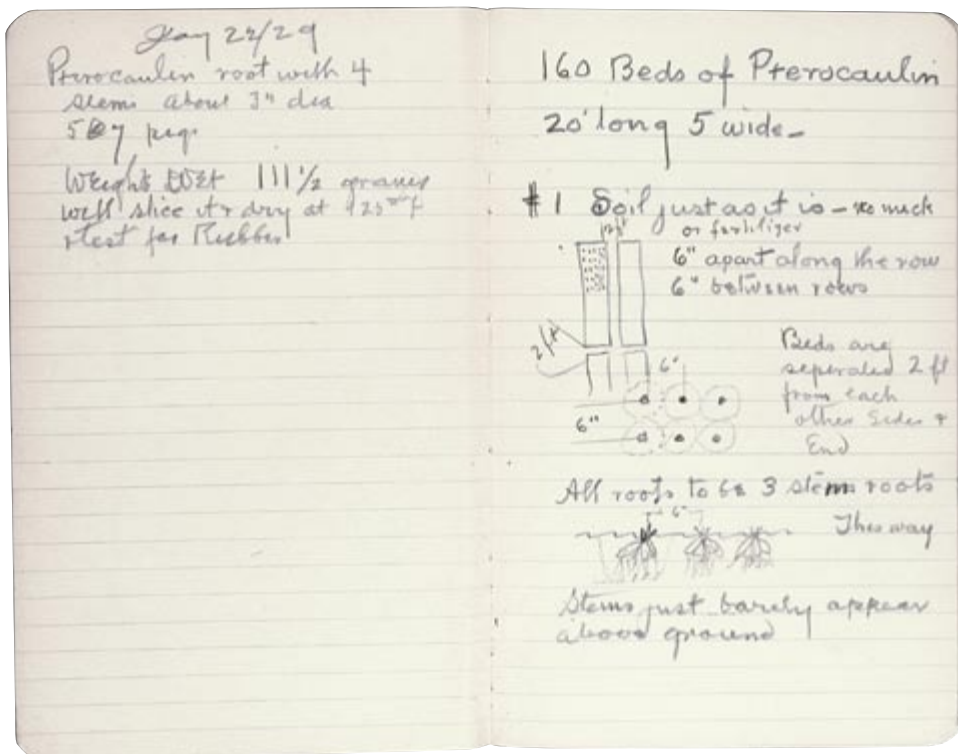 Jan 22/29
Pterocaulin root with 4
stems about 3" dia
507 pag.
Weight Wet 111 1/2 grams
will slice it & dry at 125
& test for Rubber
160 Beds of Pterocaulin
20' long 5 wide_
#1 Soil just as it is - no muck
or fertilizer
6" apart along the row
6" between rows
2 ft
6"
Beds are
seperated 2 ft
from each
other Sides &
End
6"
All roots to be 3 stem roots
6"
This way
Stems just barely appear
above ground